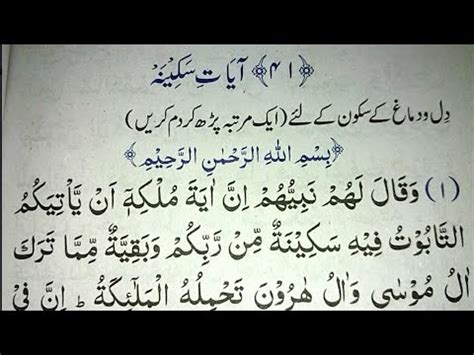 ﴿۴۱﴾ آیَاتِ سَکِیْنَہْ
دِل و دماغ کے سکون کے لئے (ایک مرتبہ پڑھ کر دم کریں)
﴿بِسْمِ اللّٰہِ الرَّحْمٰنِ الرَّحِیْمِ﴾
(۱) وَقَالَ لَهُمْ نَبِيُّهُمْ اِنَّ اٰيَةَ مُلْكِهٖٓ اَنْ يَّاْتِيَكُمُ
التَّابُوْتُ فِيْهِ سَكِيْنَةٌ مِّنْ رَّبِّكُمْ وَبَقِيَّةٌ مِّمَّا تَرَكَ
اٰلُ مُوْسٰى وَاٰلُ هٰرُوْنَ تَحْمِلُهُ الْمَلٰٓئِكَةُ ؕ اِنَّ فِيْ